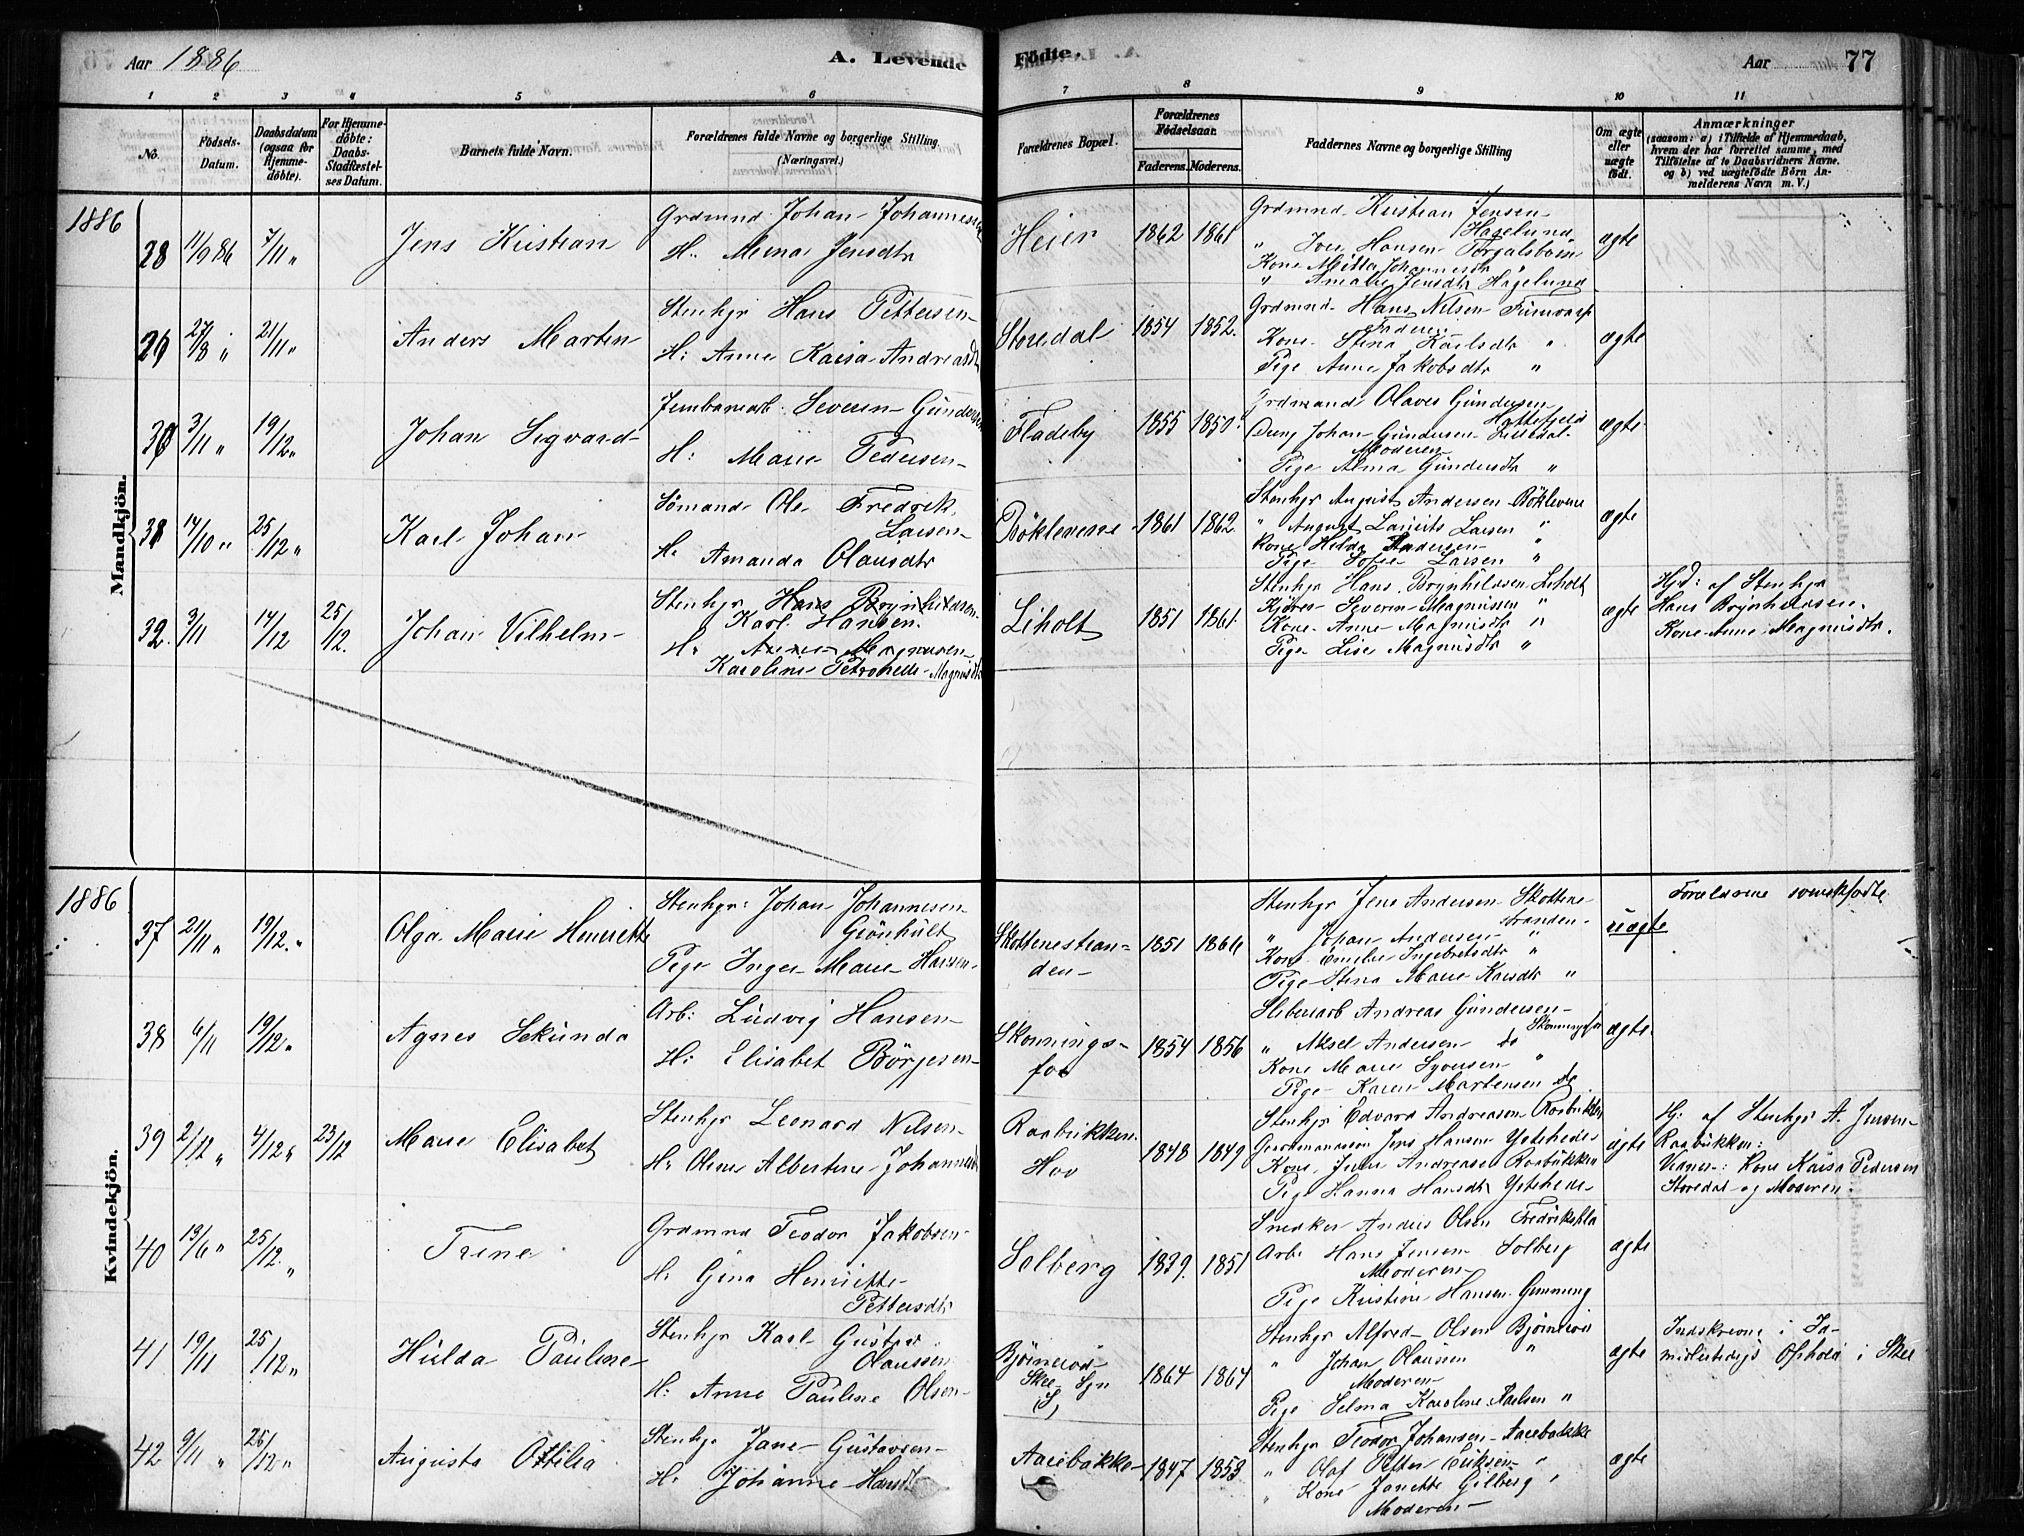 Aar 1886
A. Levende
Födte.
Aar
77
1
2
3
4
5
6
7
8
9
10
11
No.
Födsels-
Datum.
Daabsdatum
(ogsaa for
Hjemme-
döbte).
For Hjemme-
döbte:
Daabs-
Stadfæstel-
ses Datum.
Barnets fulde Navn.
Forældrenes fulde Navne og borgerlige Stilling
(Næringsvei.)
Forældrenes Bopæl.
Forældrenes
Födselsaar.
Faderens.
Moderens.
Faddernes Navne og borgerlige Stilling
Om ægte
eller
uægte
födt.
Anmærkninger
(saasom: a) i Tilfælde af Hjemmedaab,
hvem der har forrettet samme, med
Tilföielse af to Daabsvidners Navne.
og b) ved uægtefödte Börn An-
melderens Navn m.V.)
1886
Mandkjön.
28
11/9 86
7/11 "
Jens Kristian
Grdmnd Johan Johannesen
H. Mina Jensdtr
Heier
1862
1861
Grdmnd Kristian Jensen
Hagelund
" Iver Hansen Torgalsböen
Kone Mitta Johannesdtr
" Amalie Jensdtr Hagelund
ægte
29
27/8 "
21/11 "
Anders Marten
Stenhgr Hans Pettersen
H: Anne Kaisa Andreasdtr
Storedal
1854
1852.
Grdmnd Hans Nilsen
Faderen
Kone Stina Karlsdtr "
Pige Anne Jakobsdtr "
ægte
30
3/11 "
19/12 "
Johan Sigvard
Jernbanearb. Severin Gundersen
H: Marie Pedersen
Fladeby
1855
1850
Grdmand Olaves Gundersen
Hattefjeld
Ung Johan Gundersen
Moderen
Pige Alma Gundersdtr "
ægte
31
14/10 "
25/12 "
Karl Johan
Sömand Ole Fredrik
Larsen
H: Amanda Olausdtr
Böklevene
1861
1862
Stenhgr August Andersen Böklevene
" August Laurits Larsen "
Kone Hilda Andersen "
Pige Sofie Larsen "
ægte
32.
3/11
14/12
25/12.
Johan Vilhelm
Stenhgr Hans Brynhildsen
Karl Hansen.
H: Anne Magnusen
Karoline Petronelle Magnusdtr
Liholt
1851
1861
Stenhgr Hans Brynhildsen Liholt
Kjöres Severin Magnussen "
Kone Anne Magnusdtr "
Pige Lise Magnusdtr "
ægte
Hjd: af Stenhgr
Hans Brynhildsen.
Kone Anne Magnusdtr.
1886
Kvindekjön.
37
21/11 "
19/12. "
Olga Marie Henriette
Stenhgr: Johan Johannesen
Grönhult
Pige Inger Marie Hansen
Skottenestran-
den
1851
1864
Stenhgr Jens Andersen Skottene-
stranden
" Johan Andersen "
Kone Emilie Ingebretsdtr "
Pige Stina Marie Karsdtr "
uægte
Foreldrene svenskfödte
38
6/11
19/12 "
Agnes Sekunda
Arb: Ludvig Hansen
H: Elisabet Börjesen
Skonnings-
fos
1854
1856
Sliberiarb Andreas Gundersen
Skonningsfos
" Aksel Andersen do
Kone Marie Syversen "
Pige Karen Martensen do
ægte
39
2/12 "
4/12 "
23/12
Marie Elisabet
Stenhgr Leonard Nilsen
H: Oline Albertine Johannesdtr
Raabukken
Hov
1848
1849
Stenhgr Edvard Andreasen Raabukken
Gaardmandssøn Jens Hansen Ystehede
Kone Andreasen Raabukken
Pige Hanna Hansdtr Ystehede
ægte
Hj: af Stenhgr A. Jensen
Raabukken:
Vidner: Kone Kaisa Pedersen
Storedal og Moderen.
40
13/6 "
25/12. "
Trine
Grdmnd Teodor Jakobsen
H: Gina Henriette
Pettersdtr
Solberg
1839.
1851
Snedker Anders Olsen Fredrikshld
Arb: Hans Jensen Solberg
Moderen
Pige Kristine Hansen
ægte
41
19/11
25/12 "
Hulda Pauline
Stenhgr Karl Gustav
Olaussen
H: Anne Pauline Olsen
Björneröd
Skee Sgn
(S)
1864
1864
Stenhgr Alfred Olsen Björneröd
" Johan Olaussen "
Moderen
Pige Selma Karoline Karlsen "
ægte
Indskrevne i Id-
midlertidigt Ophold i Skee
42
9/11 "
26/12 "
Augusta Ottilia
Stenhgr Jane Gustavsen
H: Johanne Hansdtr
Aarebakke
1847
1853
Stenhgr Teodor Johansen Aarebakke
" Olaf Petter Eriksen "
" Kone Janette Gilberg "
Moderen
ægte